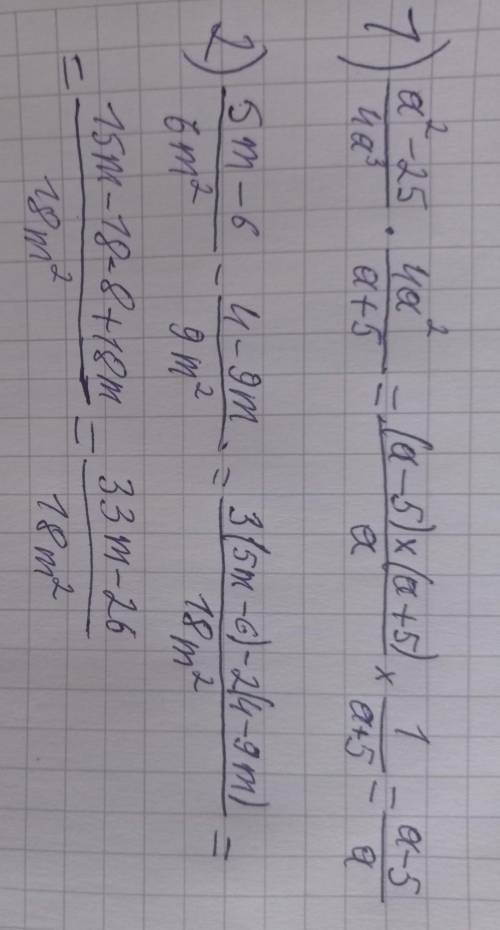 1) (a² - 25)/(4a³) · (4a²)/(a+5) = ((a-5)×(a+5))/a × 1/(a+5) = (a-5)/a
2) (5m-6)/(6m²) - (4-9m)/(9m²) = (3(5m-6)-2(4-9m))/(18m²) =
= (15m-18-8+18m)/(18m²) = (33m-26)/(18m²)